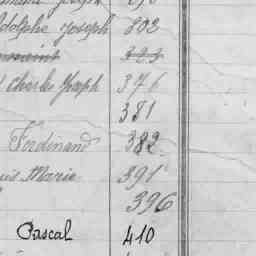 Joseph
Adolphe Joseph 803
323
Charles Joseph 376
381
Ferdinand 382
Marie 391
396
Pascal 410